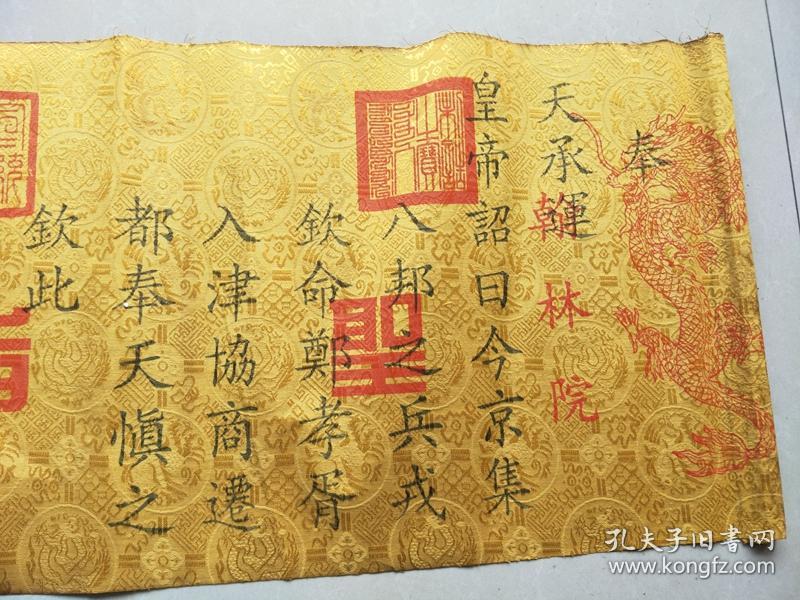 奉
天承運
翰林院
皇帝詔曰今京集
八邦之兵戎
欽命鄭孝胥
入津協商遷
都奉天慎之
欽此
聖
孔夫子旧書网
www.kongfz.com